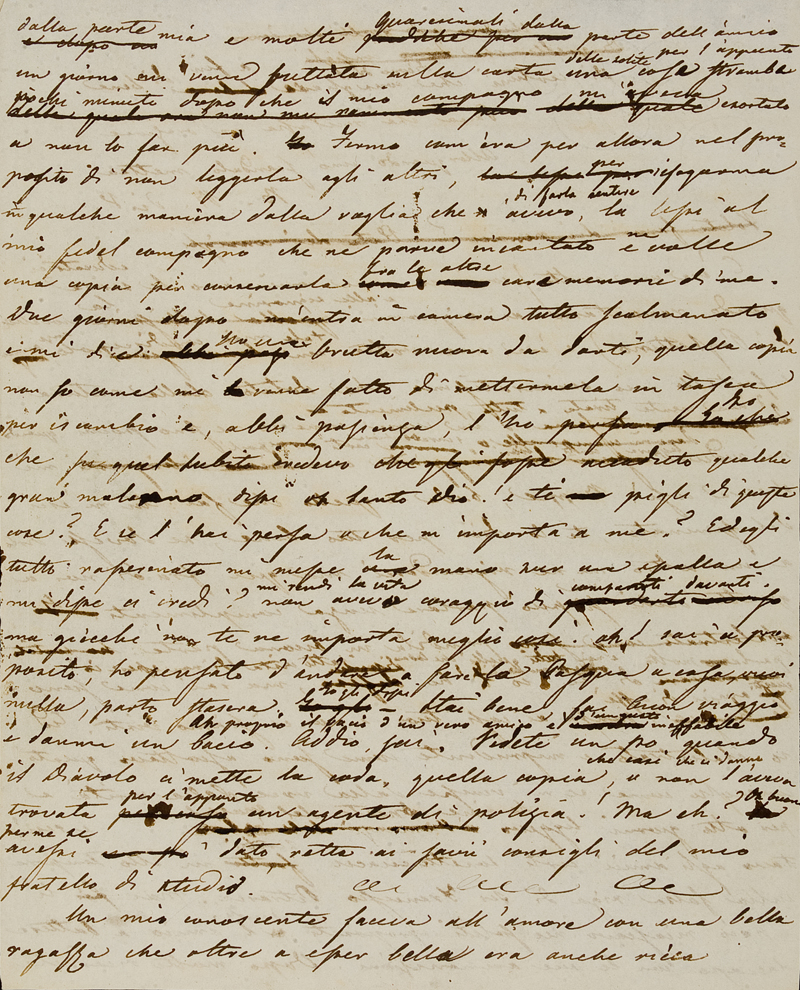 dalla parte mia e molte quaresimali dalla parte dell'amico
un giorno mi venne gettata sulla carta una delle solite cose stramba per l'appunto
pochi minuti dopo che il mio compagno mi aveva esortato
a non lo far più. Fermo com'era per allora nel pro-
posito di non leggerla agli altri, per isfogarmi
in qualche maniera dalla voglia che avevo di farla sentire, la lessi al
mio fedel compagno che ne parve incantato e ne volle
una copia per conservarla tra le altre care memorie di me.
Due giorni dopo mi entra in camera tutto scalmanato
e mi dice: brutta nuova da darti, quella copia
non so come mi venne fatto di mettermela in tasca
per iscambio e, abbi pazienza, l'ho persa
che credevo accaduto qualche
gran malanno, dissi oh santo Dio! e ti pigli di queste
cose? E se l'hai persa o che m'importa a me? Ed egli
tutto rasserenato mi messe la mano sur una spalla e
mi disse ci credi? mi rendi la vita non avevo coraggio di comparirti davanti.
ma giacché non te ne importa meglio così. oh! sai a pro-
posito; ho pensato d'andare a fare la Pasqua a casa, vuoi
nulla, parto stasera. Stai bene, fai buon viaggio
Ah proprio il bacio d'un vero amico è d'un gusto ineffabile
e dammi un bacio. Addio, sai. Vedete un po' quando
il Diavolo ci mette la coda, quella copia, o non l'aveva
che casi che ci danno
trovata per l'appunto un agente di polizia! Ma eh? Oh buon
per me se
avessi dato retta ai savii consigli del mio
fratello di studio.
Un mio conoscente faceva all'amore con una bella
ragazza che oltre a esser bella era anche ricca